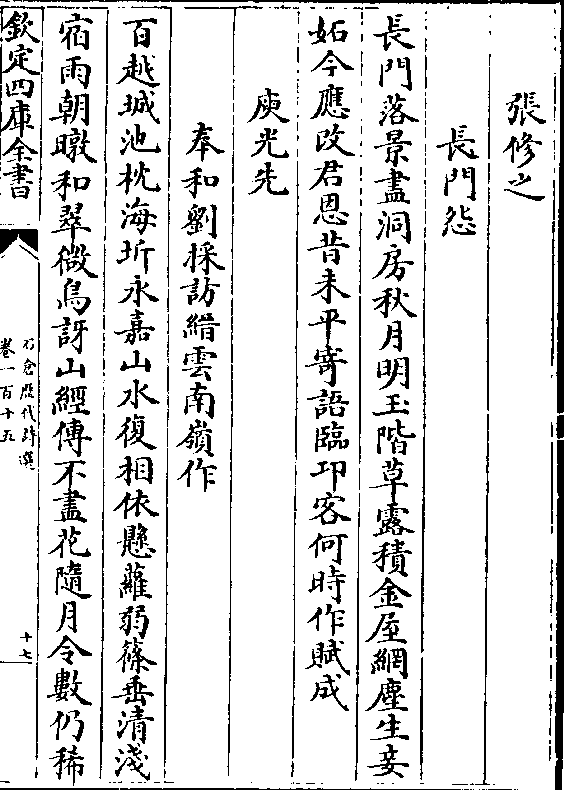 張修之
長門怨
長門落景盡洞房秋月明玉階草露積金屋網塵生妾
妬今應改君恩昔未平寄語臨邛客何時作賦成
庾光先
奉和劉採訪縉雲南嶺作
百越城池枕海圻永嘉山水復相依懸蘿弱篠垂清淺
宿雨朝暾和翠微鳥訝山經傳不盡花隨月令數仍稀
欽定四庫全書
石倉歷代詩選
卷一百十五
十七